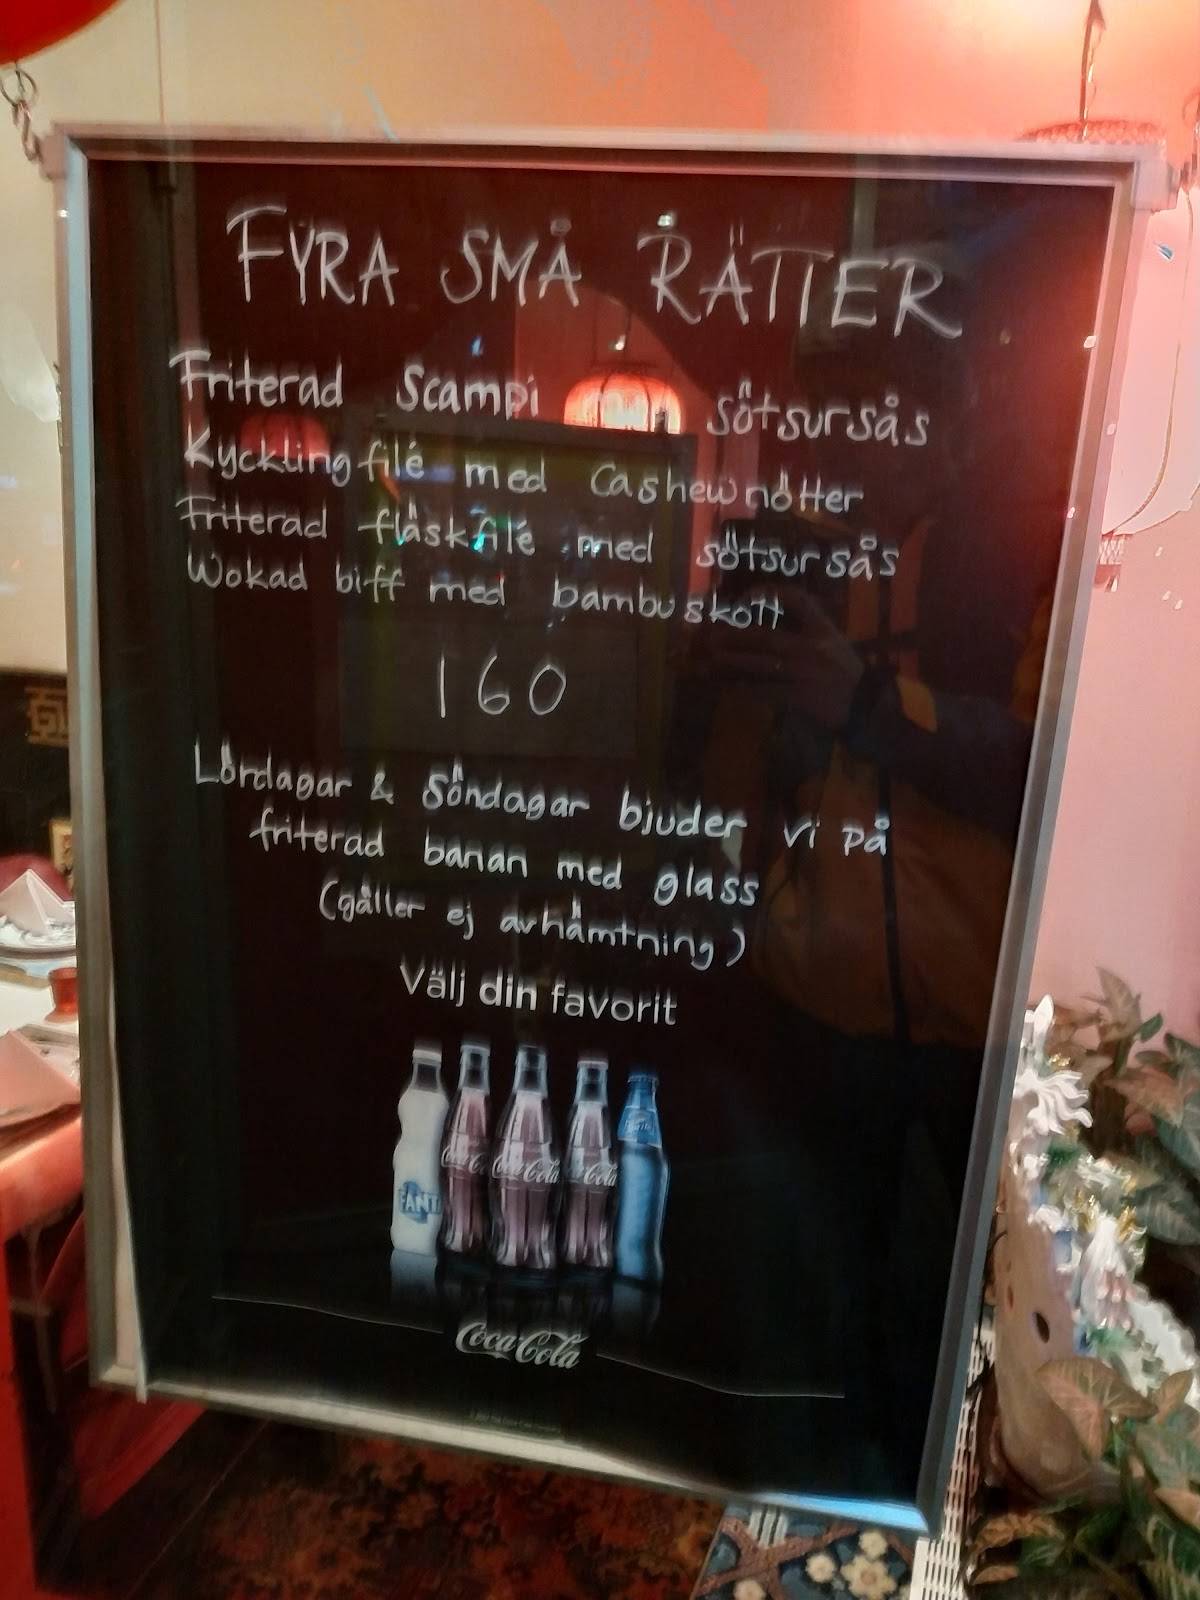 FYRA SMÅ RÄTTER
Friterad Scampi sötsursås
Kycklingfilé med Cashewnötter
Friterad fläskfilé med sötsursås
Wokad biff med bambuskott
160
Lördagar & Söndagar bjuder vi på
friterad banan med glass
(gäller ej avhämtning)
Välj din favorit
FANT
Coca-Cola
Coca-Cola
Coca-Cola
Sprite
Coca-Cola